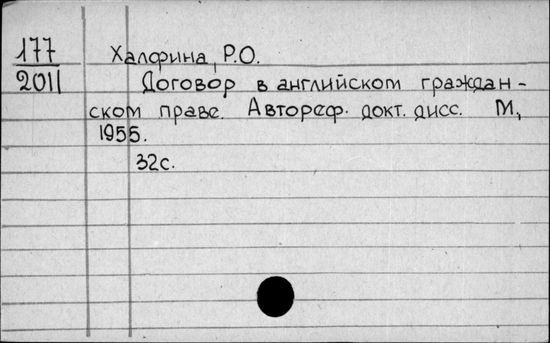 177
2011
Халфина, Р.О.
Договор в английском граждан-
ском праве. Автореф. докт. дисс. М,
1955.
32с.